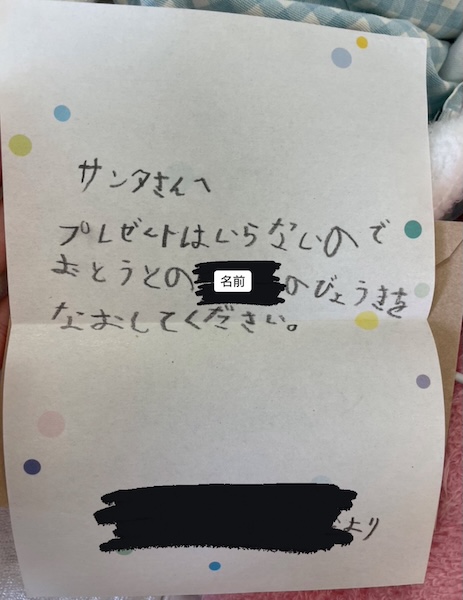 サンタさんへ
プレゼントはいらないので
おとうとの名前のびょうきを
なおしてください。
より